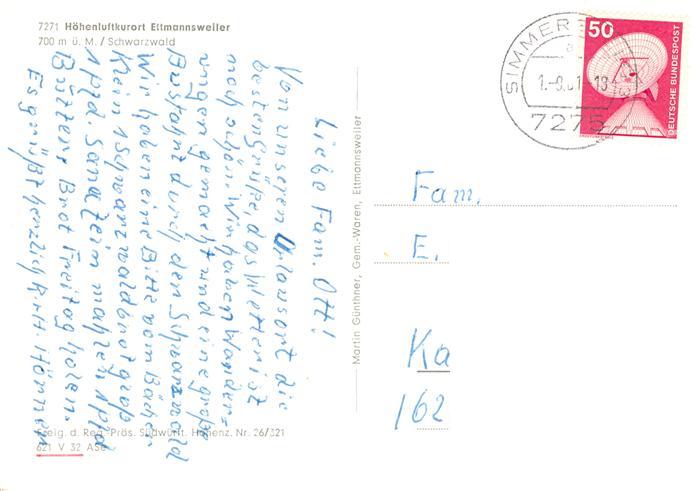 7271 Höhenluftkurort Ettmannsweiler
700 m ü. M. / Schwarzwald
Liebe Fam. Ott!
Von unseren Urlausort die
besten Grüße, das Wetter ist
noch schön. Wir haben Wander=
ungen gemacht und eine große
Busfahrt durch den Schwarzwald
Wir haben eine Bitte vom Bäcker
Klein 1 Schwarzwaldbrot groß
1 Pfd
Butter Brot Freitag holen.
Es grüßt herzlich
Freig. d. Reg.-Präs. Südwürt. Hohenz. Nr. 26/321
621 V 32 ASe
Martin Günthner, Gem.-Waren, Ettmannsweiler
SIMMERS
a
7275
50
DEUTSCHE BUNDESPOST
Fam.
E.
Ka
162